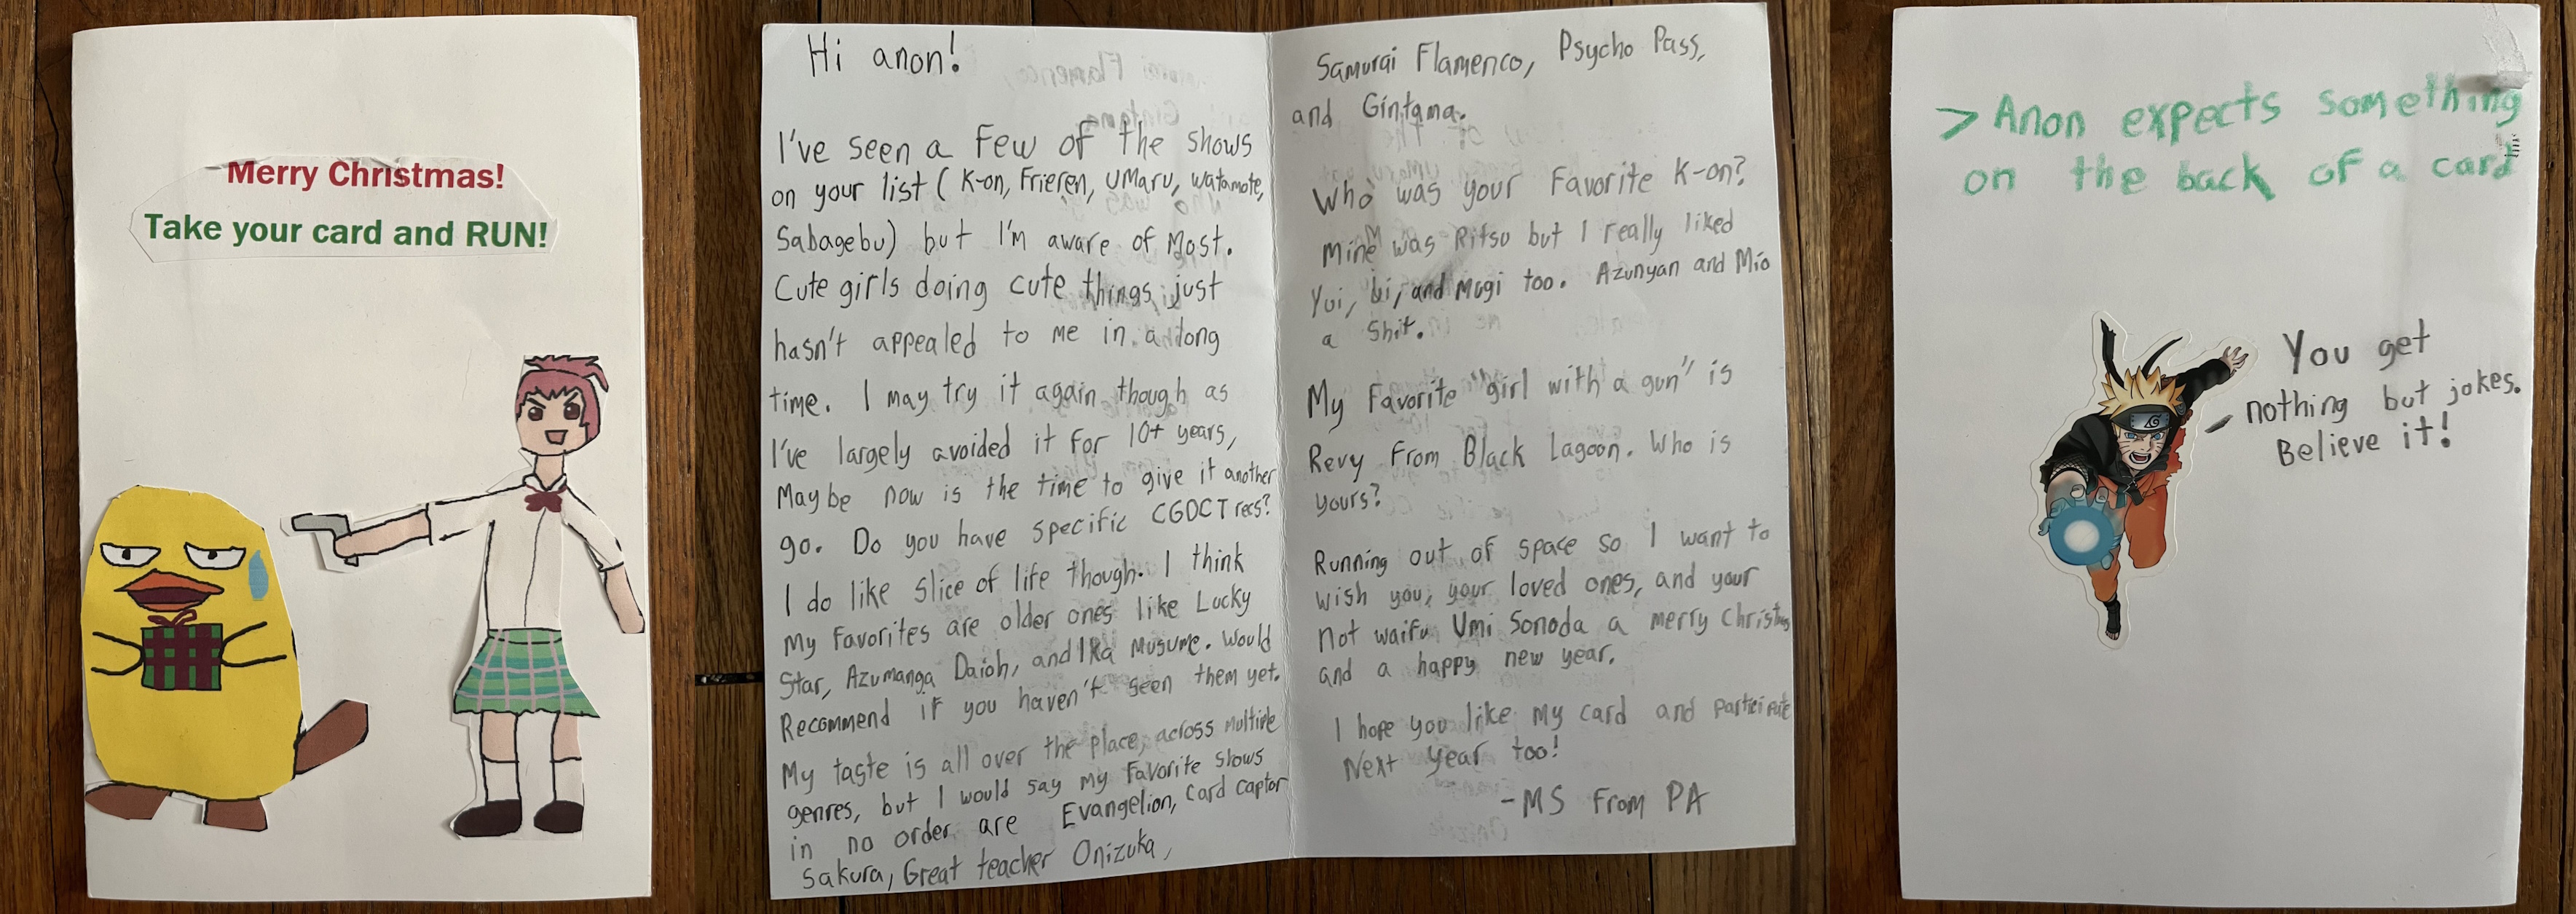 Merry Christmas!
Take your card and RUN!
Hi anon!
I've seen a few of the shows
on your list ( K-on, Frieren, UMaru, watamote,
Sabagebu) but I'm aware of Most.
Cute girls doing cute things just
hasn't appealed to me in a long
time. I may try it again though as
I've largely avoided it for 10+ years,
Maybe now is the time to give it another
go. Do you have specific CGDCT recs?
I do like slice of life though. I think
My favorites are older ones like Lucky
Star, Azumanga Daioh, and Ika Musume. Would
Recommend if you haven't seen them yet.
My taste is all over the place, across multiple
genres, but I would say my favorite shows
in no order are Evangelion, Card captor
Sakura, Great teacher Onizuka,
Samurai Flamenco, Psycho Pass,
and Gintama.
Who was your favorite K-on?
Mine was Ritsu but I really liked
Yui, Ui, and Mugi too. Azunyan and Mio
a shit.
My Favorite "girl with a gun" is
Revy From Black Lagoon. Who is
yours?
Running out of space so I want to
wish you, your loved ones, and your
not waifu Umi Sonoda a merry Christmas
and a happy new year.
I hope you like my card and participate
Next year too!
-MS From PA
> Anon expects something
on the back of a card
You get
nothing but jokes.
Believe it!